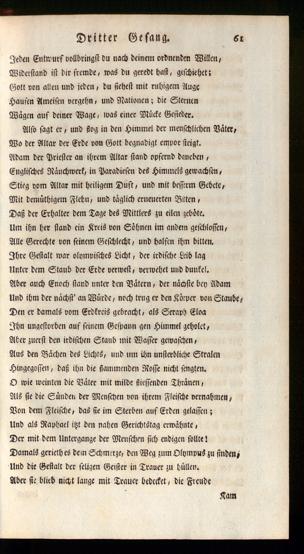 Dritter Gesang. 61
Jeden Entwurf vollbringst du nach deinem ordnenden Willen,
Widerstand ist dir fremde, was du geredt hast, geschiehet;
Gott von allen und jeden, du siehest mit ruhigem Auge
Haufen Ameisen vergehn, und Nationen; die Sternen
Wägen auf deiner Wage, was einer Mücke Gefieder.
Also sagt er, und flog in den Himmel der menschlichen Väter,
Wo der Altar der Erde von Gott begnadigt empor steigt.
Adam der Priester an ihrem Altar stand opfernd daneben,
Englisches Räuchwerk, in Paradiesen des Himmels gewachsen,
Stieg vom Altar mit heiligem Duft, und mit besserm Gebete,
Mit demüthigem Flehn, und täglich erneuerten Biten,
Daß der Erhalter dem Tage des Mittlers zu eilen geböte.
Um ihn her stand ein Kreis von Söhnen im andern geschlossen,
Alle Gerechte von seinem Geschlecht, und halfen ihm bitten.
Ihre Gestalt war olympisches Licht, der irdische Leib lag
Unter dem Staub der Erde verwest, verwehet und dunkel.
Aber auch Enoch stand unter den Vätern, der nächste bey Adam
Und ihm der nächst' an Würde, noch trug er den Körper von Staube,
Den er damals vom Erdkreis gebracht, als Seraph Eloa
Ihn ungestorben auf seinem Gespann gen Himmel geholet,
Aber zuerst den irdischen Stand mit Wasser gewaschen,
Aus den Bächen des Lichts, und um ihn unsterbliche Stralen
Hingegossen, daß ihn die flammenden Rosse nicht sengten.
O wie weinten die Väter mit milde fliessenden Thränen,
Als sie die Sünden der Menschen von ihrem Fleische vernahmen,
Von dem Fleische, das sie im Sterben auf Erden gelassen;
Und als Raphael itzt den nahen Gerichtstag erwähnte,
Der mit dem Untergange der Menschen sich endigen sollte!
Damals geriethes dem Schmerze, den Weg zum Olympus zu finden,
Und die Gestalt der seligen Geister in Trauer zu hüllen.
Aber sie blieb nicht lange mit Trauer bedecket, die Freude
Kam